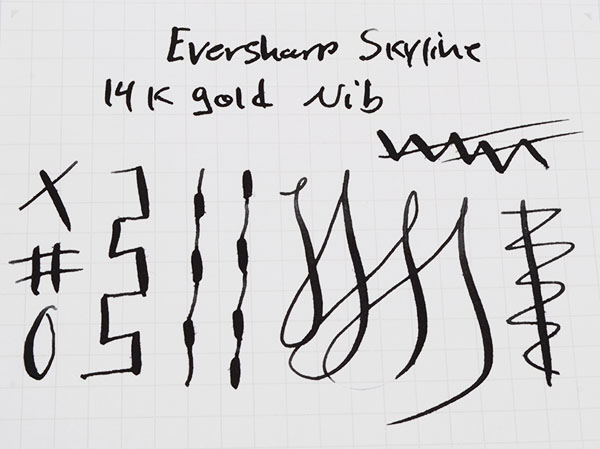 Eversharp Skyline
14K gold Nib
X
#
O